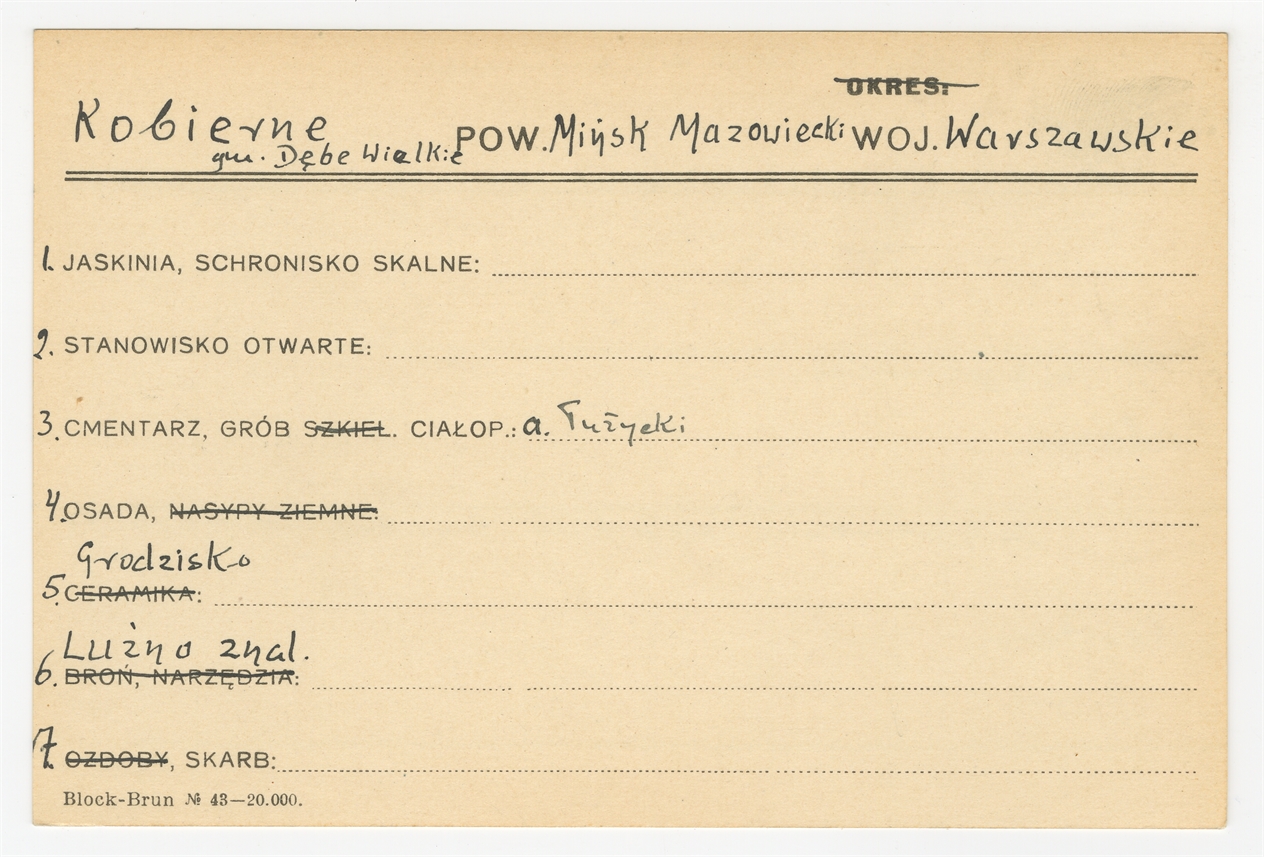 OKRES:
Kobierne POW. Mińsk Mazowiecki WOJ. Warszawskie
gm. Dębe Wielkie
1. JASKINIA, SCHRONISKO SKALNE:
2. STANOWISKO OTWARTE:
3. CMENTARZ, GRÓB SZKIEL. CIAŁOP.: a. Łużycki
4. OSADA, NASYPY ZIEMNE:
Grodzisko
5. CERAMIKA:
Luźno znal.
6. BROŃ, NARZĘDZIA:
7. OZDOBY, SKARB:
Block-Brun № 43—20.000.